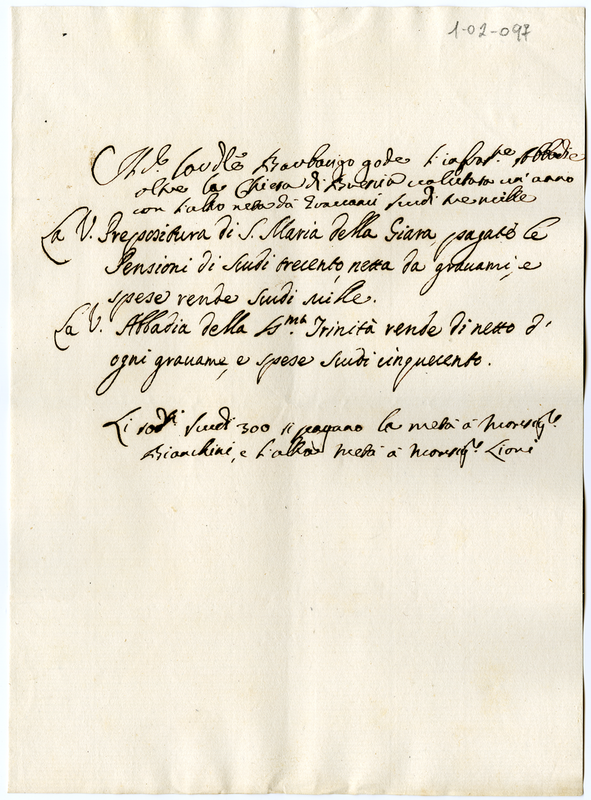 1-02-097
Il S.r Card.le Barbarigo gode l'infras.tte Abbadie
oltre la Chiesa di Brescia valutata un'anno
con l'altro netta da gravami scudi tre mille
La V. Prepositura di S. Maria della Giara, pagate le
Pensioni di scudi trecento, netta da gravami, e
spese rende scudi mille.
La V. Abbadia della SS.ma Trinità rende di netto d'
ogni gravame, e spese scudi cinquecento.
Li sod.i scudi 300 si pagano la metà à Monsig.r
Bianchini, e l'altra metà à Monsig.r Lioni